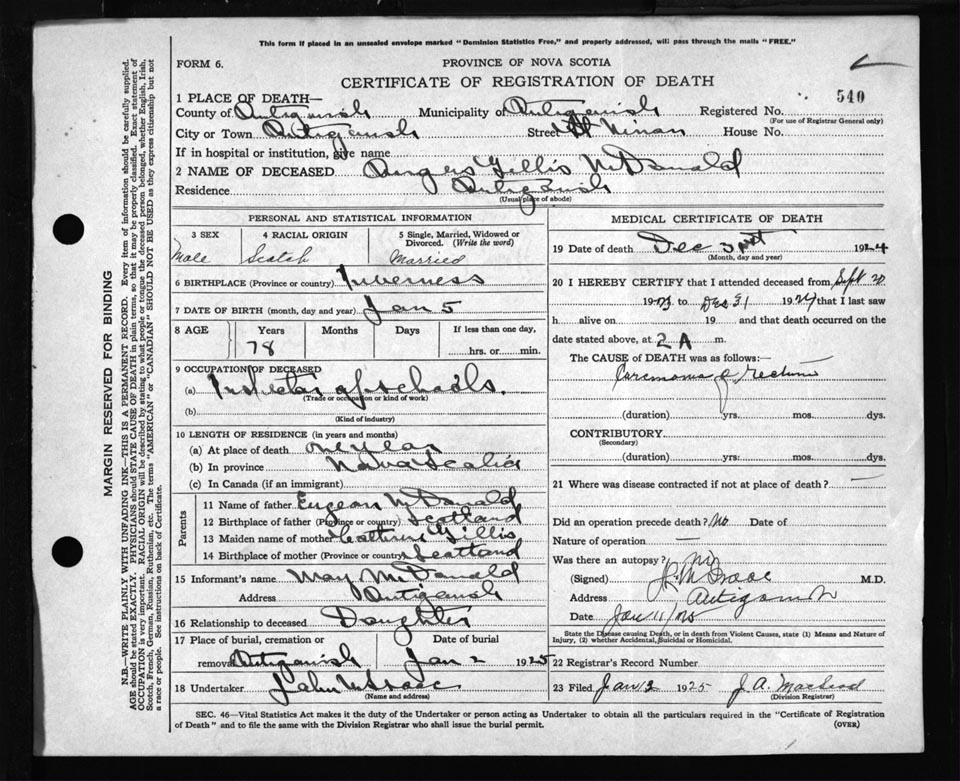 This form if placed in an unsealed envelope marked "Dominion Statistics Free," and properly addressed, will pass through the mails "FREE."
FORM 6. PROVINCE OF NOVA SCOTIA
CERTIFICATE OF REGISTRATION OF DEATH
540
1 PLACE OF DEATH—
County of Antigonish Municipality of Antigonish Registered No.
(For use of Registrar General only)
City or Town Antigonish Street St Ninan House No.
If in hospital or institution, give name
2 NAME OF DECEASED Angus Gillis McDonald
Residence Antigonish
(Usual place of abode)
PERSONAL AND STATISTICAL INFORMATION
3 SEX 4 RACIAL ORIGIN 5 Single, Married, Widowed or Divorced. (Write the word)
Male Scotch Married
6 BIRTHPLACE (Province or country) Inverness
7 DATE OF BIRTH (month, day and year) Jan 5
8 AGE Years Months Days If less than one day,
78 hrs. or min.
9 OCCUPATION OF DECEASED
(a) Inspector of schools.
(Trade or occupation or kind of work)
(b)
(Kind of industry)
10 LENGTH OF RESIDENCE (in years and months)
(a) At place of death one year
(b) In province Nova Scotia
(c) In Canada (if an immigrant)
Parents
11 Name of father McDonald
12 Birthplace of father (Province or country) Scotland
13 Maiden name of mother Catherine Gillis
14 Birthplace of mother (Province or country) Scotland
15 Informant's name May McDonald
Address Antigonish
16 Relationship to deceased Daughter
17 Place of burial, cremation or Date of burial
removal Antigonish Jan 2 1925
18 Undertaker John
(Name and address)
MEDICAL CERTIFICATE OF DEATH
19 Date of death Dec 31st 1924
(Month, day and year)
20 I HEREBY CERTIFY that I attended deceased from Sept 20
1923 to Dec 31 1924 that I last saw
h alive on 19 and that death occurred on
date stated above, at 2 A m.
The CAUSE of DEATH was as follows:—
Carcinoma of rectum
(duration) yrs. mos. dys.
CONTRIBUTORY
(Secondary)
(duration) yrs. mos. dys.
21 Where was disease contracted if not at place of death? —
Did an operation precede death? No Date of
Nature of operation —
Was there an autopsy? No
(Signed) M.D.
Address Antigonish
Date Jan 11/25
State the Disease causing Death, or in death from Violent Causes, state (1) Means and Nature of Injury, (2) whether Accidental, Suicidal or Homicidal.
22 Registrar's Record Number
23 Filed Jan 12 1925 J. A. MacLeod
(Division Registrar)
SEC. 46—Vital Statistics Act makes it the duty of the Undertaker or person acting as Undertaker to obtain all the particulars required in the "Certificate of Registration
of Death" and to file the same with the Division Registrar who shall issue the burial permit. (OVER)
MARGIN RESERVED FOR BINDING
N.B.—WRITE PLAINLY WITH UNFADING INK—THIS IS A PERMANENT RECORD. Every item of information should be carefully supplied.
AGE should be stated EXACTLY. PHYSICIANS should STATE CAUSE OF DEATH in plain terms, so that it may be properly classified. Exact statement of
OCCUPATION is very important. RACIAL ORIGIN will be described by stating to what people or tongue the deceased person belonged, whether English, Irish,
Scotch, French, German, Russian, Ruthenian, etc. The terms "AMERICAN" or "CANADIAN" SHOULD NOT BE USED as they express citizenship but not
a race or people. See instructions on back of Certificate.